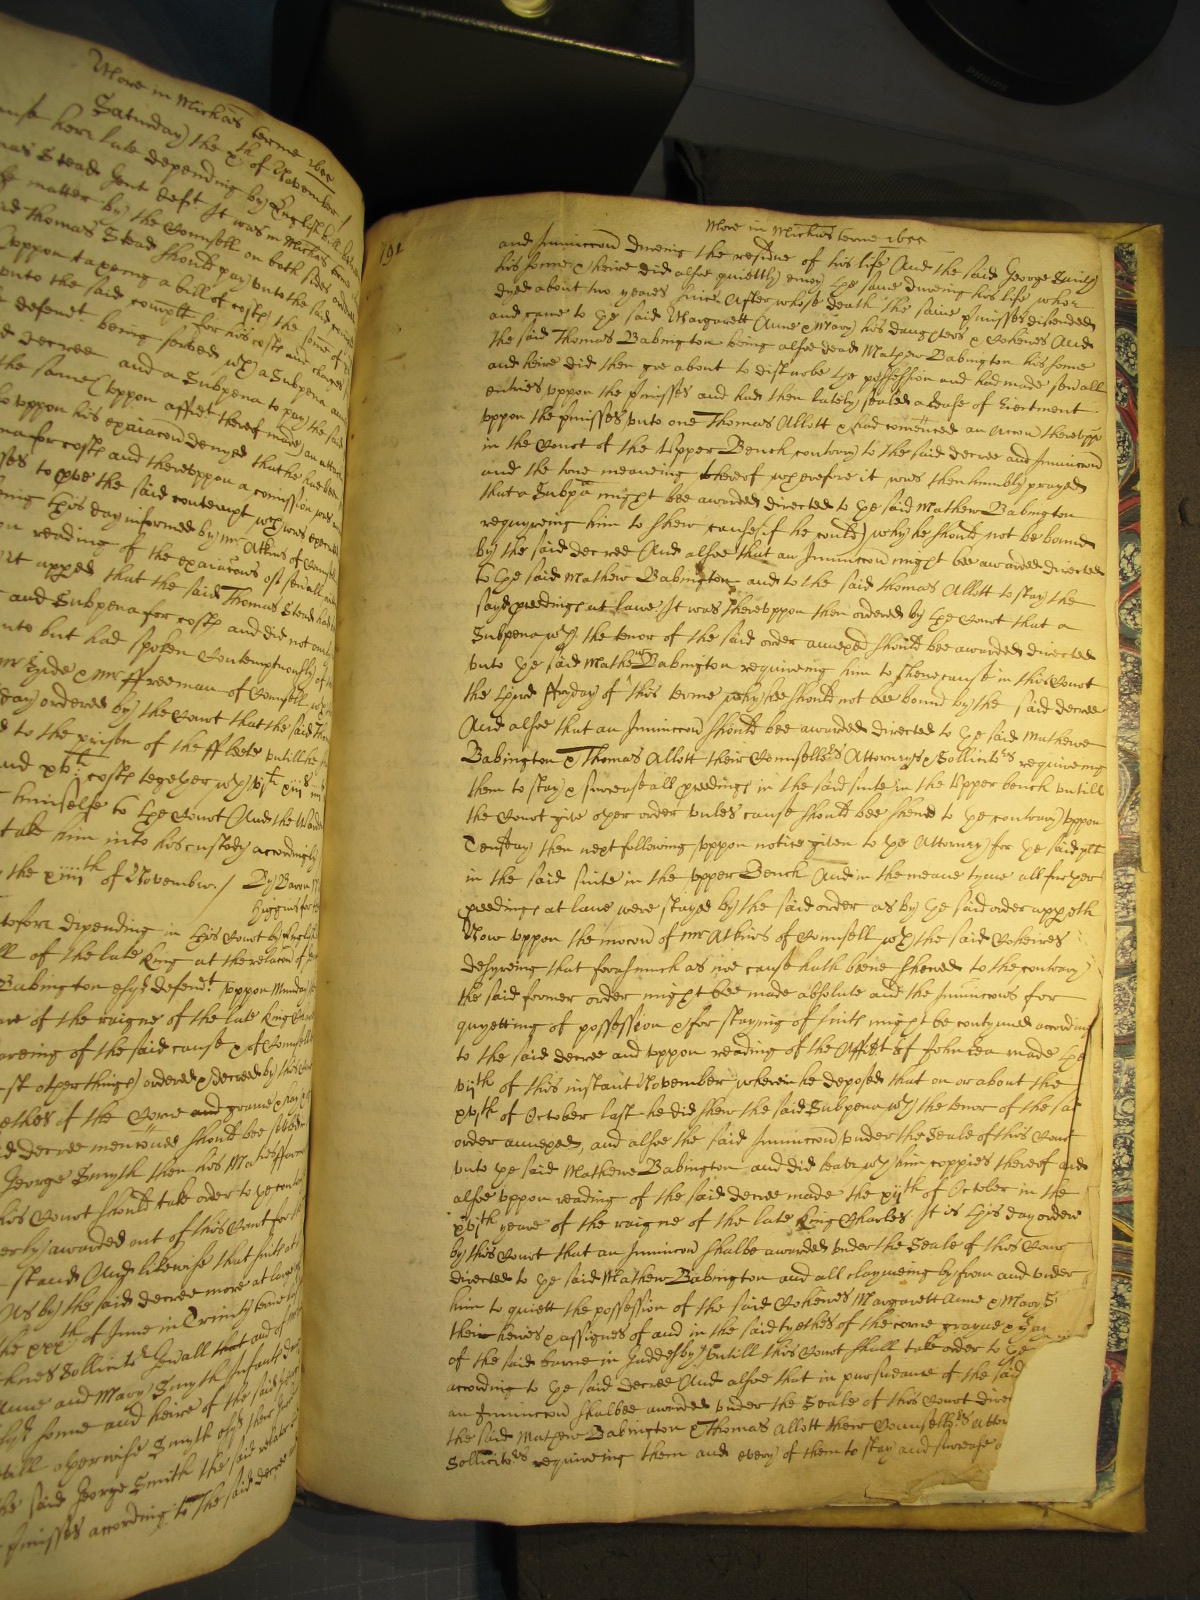 More in Michas terme 1655
Saturday the xth of November
here late depending by English bill
Stead Gent deft It was in Michas terme
matter by the Counsell on both sides
Thomas Stead should pay unto the said
uppon taxeing a bill of costs the some of
unto the said complt for his costs and charges
being served wth a Subpena
decree and a Subpena to pay the said
the same (uppon affidt thereof made)
uppon his exaiacon denyed that he had
for costs and thereuppon a comission
to prove the said contempt wch was
this day informed by mr Atkins of Counsell
reading of the exaiacons of severall
it apped that the said Thomas Stead had
and Subpena for costs and did not
but had spoken Contemptuously of
mr Hide & mr ffreeman of Counsell wth
day ordered by the Court that the said
to the prison of the ffleete untill he
costs together wth
himselfe to the Court And the
take him into his custody accordingly
the xiiiith of November / By Baron
depending in this Court by English
of the late King at the relacon of
Babington esqr defendt uppon Munday
of the raigne of the late King
of the said cause & of Counsell
other things ordered & decreed by this
tethes of the Corne and graine & hay
decree mentioned should bee
George Smyth then his Maties
this Court should take order to the contrary
awarded out of this Court for
stand And likewise that
As by the said decree more at large
the xxxth of June in Trinity terme
Sollicitor Genall that
Anne and Mary Smyth Infants
sonne and heire of the said
otherwise Smyth
the said George Smith the said
pmisses according to the said decree
191
More in Michas terme 1655
and Iniuncon dureing the residue of his life And the said George Smith
his sonne & heire did alsoe quiettly enioy the same dureing his life who
dyed about two yeares since After whose death the same pmisses discended
and came to the said Margarett Anne & Mary his daughters & Coheires And
the said Thomas Babington being alsoe dead Mathew Babington his sonne
and heire did then goe about to disturbe the possession and had made sevall
entries uppon the pmisses and had then lately sealed a lease of Eiectment
uppon the pmisses unto one Thomas Allott & had comenced an Accon thereuppon
in the Court of the Upper Bench contrary to the said decree and Iniuncon
and the true meaneing thereof wherefore it was then humbly prayed
that a Subpa might bee awarded directed to the said Mathew Babington
requyreing him to shew cause (if he could) why he should not be bound
by the said decree And alsoe that an Iniuncon might bee awarded directed
to the said Mathew Babington and to the said Thomas Allott to stay the
said pceedings at lawe It was thereuppon then ordered by the Court that a
Subpena wth the tenor of the said order annexed should bee awarded directed
unto the said Mathew Babington requireing him to shewe cause in this Court
the third ffryday of this terme why hee should not bee bound by the said decree
And alsoe that an Iniuncon should bee awarded directed to the said Mathewe
Babington & Thomas Allott their Counsellors Attorneys & Sollicitors requireing
them to stay & surcease all pceedings in the said suite in the Upper bench untill
the Court give other order unles cause should bee shewed to the contrary uppon
Tensday then next following uppon notice given to the Attorney for the said plt
in the said suite in the upper Bench And in the meane tyme all further
pceedings at lawe were stayed by the said order as by the said order appeth
Now uppon the mocon of mr Atkins of Counsell wth the said Coheires
desyreing that forasmuch as noe cause hath beene shewed to the contrary
the said former order might bee made absolute and the Iniuncons for
quyetting of possession & for staying of suits might be contynued according
to the said decree and uppon reading of the Affidt of John Lea made the
viith of this instant November wherein he deposed that on or about the
xvith of October last he did shew the said Subpena wth the tenor of the said
order annexed, and alsoe the said Iniuncon under the Seale of this Court
unto the said Mathewe Babington and did leave wth him coppies thereof and
alsoe uppon reading of the said decree made the xiith of October in the
xvith yeare of the raigne of the late King Charles It is this day ordered
by this Court that an Iniuncon shalbe awarded under the Seale of this Court
directed to the said Mathew Babington and all claymeing by from and under
him to quiett the possession of the said Coheires Margarett Anne & Mary S
their heires & assignes of and in the said tyethes of the corne grayne & hay
of the said farme in Gaddesby untill this Court shall take order to the
according to the said decree And alsoe that in pursuance of the said
an Iniuncon shalbee awarded under the Seale of this Court direc
the said Mathew Babington & Thomas Allott their Counsellors Attor
Sollicitors requireing them and every of them to stay and surcease a